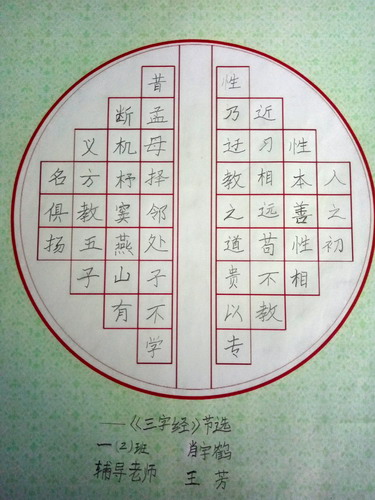 人之初
性本善性相
近习相远苟不教
性乃迁教之道贵以专
昔孟母择邻处子不学
断机杼窦燕山有
义方教五子
名俱扬
——《三字经》节选
一(2)班 肖宇鹤
辅导老师 王芳